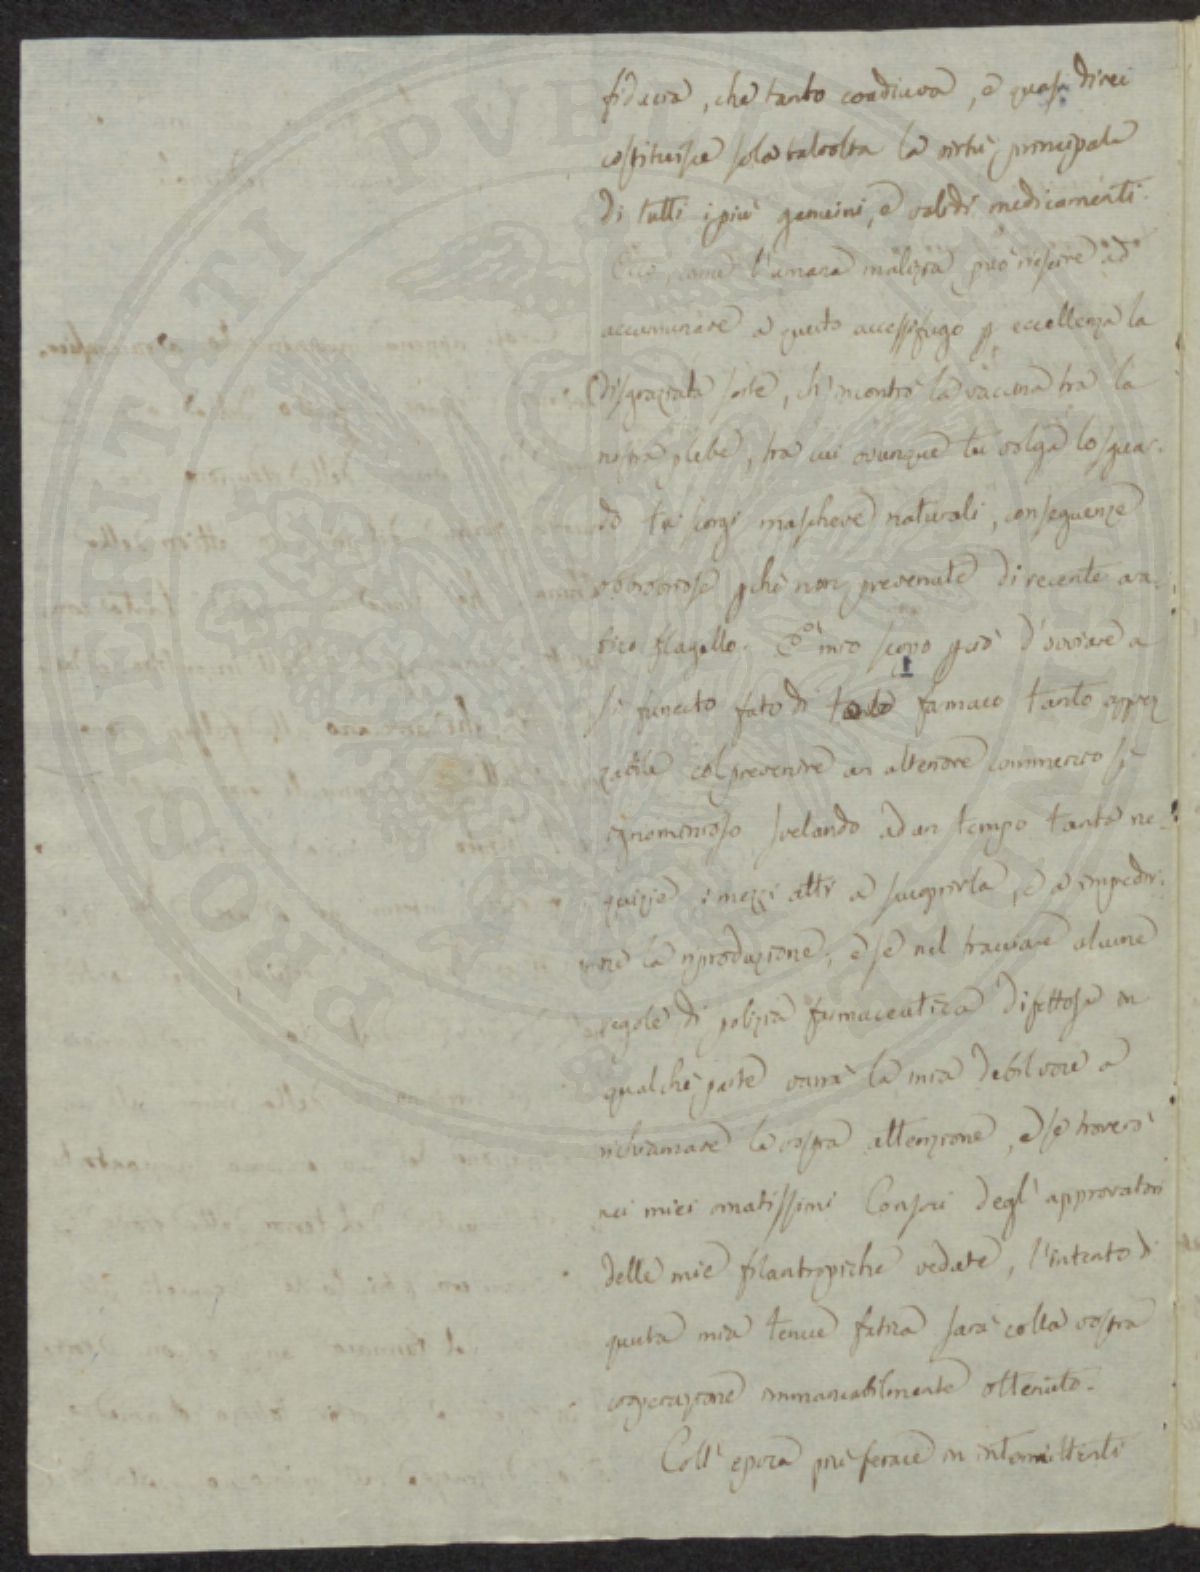 fiducia, che tanto coadiuva, e quasi direi
costituisce sola talvolta la virtù principale
di tutti i più genuini, e validi medicamenti.
Ecco come l'umana malizia può riescire ad
accumunare a questo accessifugo p eccellenza la
disgraziata sorte, ch'incontrò la vaccina tra la
nostra plebe, tra cui ovunque tu volga lo sguar-
do tu scorgi maschere naturali, conseguenze
obbrobriose pchè non prevenute di recente
tico flagello. È mio scopo pciò d'ovviare a
sì funesto fato di farmaco tanto apprez
zabile col prevenire un ulteriore commercio sì
ignominioso svelando ad un tempo tanta ne-
quizie i mezzi atti a scuoprirla, e a impedir-
ne la riproduzione, e se nel tracciare alcune
regole di polizia farmaceutica difettosa in
qualche parte varrà la mia debil voce a
richiamare la vostra attenzione, e se troverò
nei miei ornatissimi Consoci degl'approvatori
delle mie filantropiche vedute, l'intento di
questa mia tenue fatica sarà colla vostra
cooperazione immancabilmente ottenuto.
Coll'epoca più ferace in intermittenti
PROSPERITATI PVBLICAE